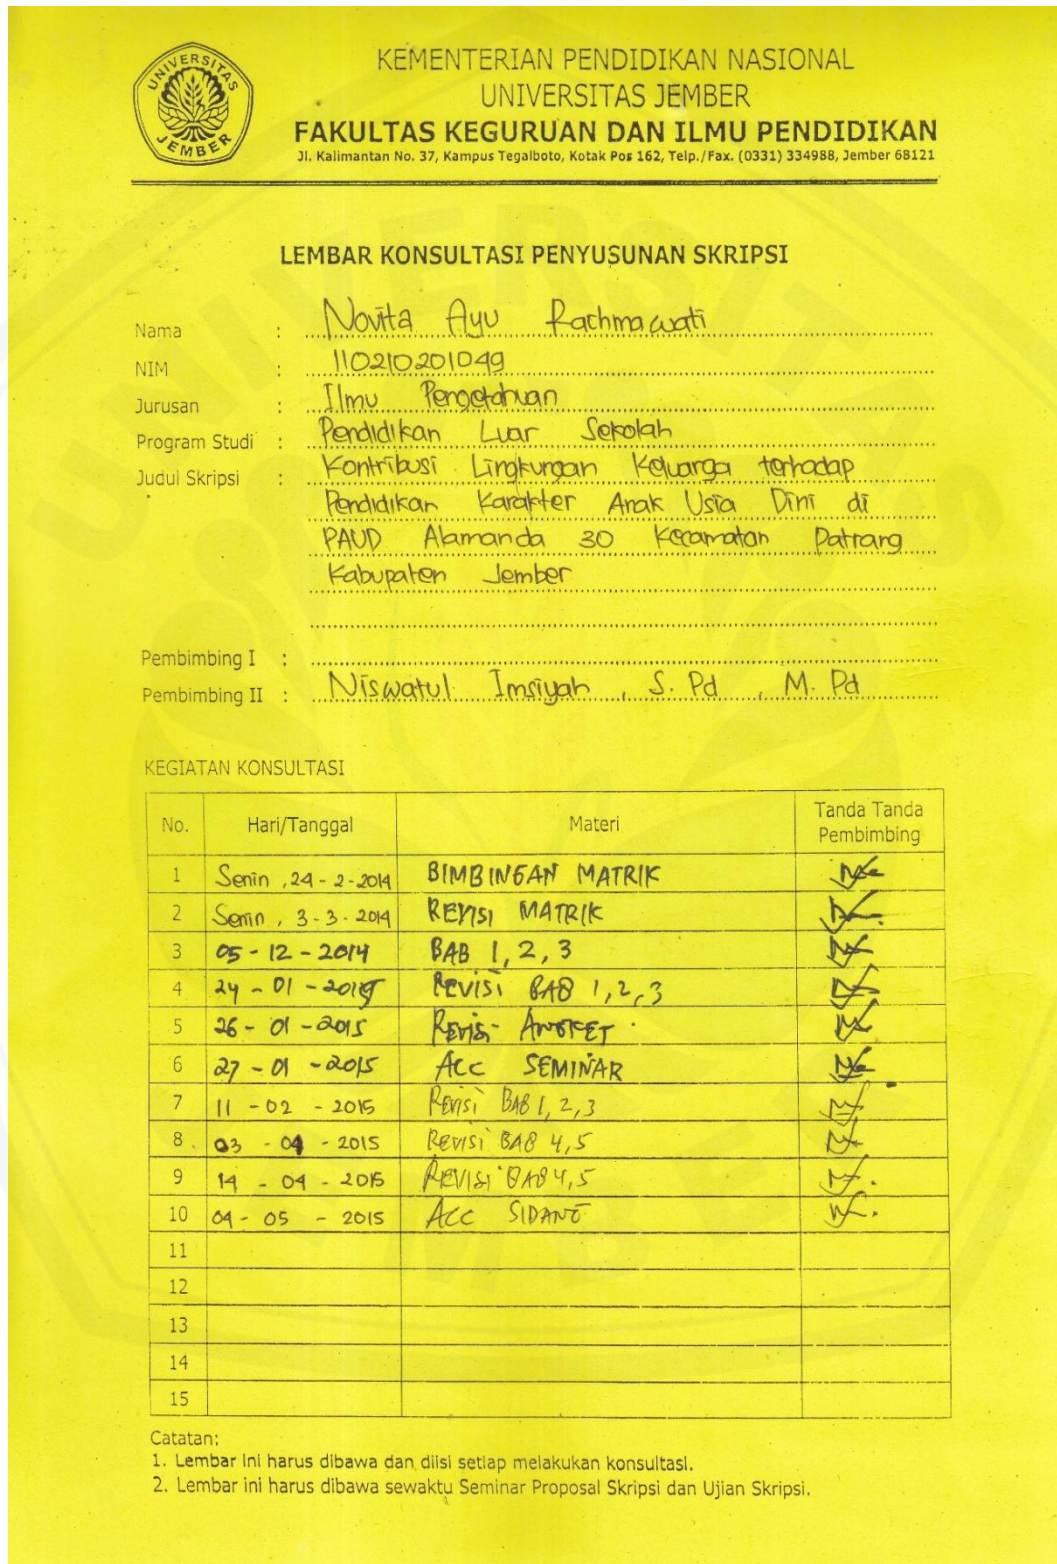 UNIVERSITAS
JEMBER
KEMENTERIAN PENDIDIKAN NASIONAL
UNIVERSITAS JEMBER
FAKULTAS KEGURUAN DAN ILMU PENDIDIKAN
Jl. Kalimantan No. 37, Kampus Tegalboto, Kotak Pos 162, Telp./Fax. (0331) 334988, Jember 68121
LEMBAR KONSULTASI PENYUSUNAN SKRIPSI
Nama : Novita Ayu Rachmawati
NIM : 110210201049
Jurusan : Ilmu Pengetahuan
Program Studi : Pendidikan Luar Sekolah
Judul Skripsi : Kontribusi Lingkungan Keluarga terhadap
Pendidikan Karakter Anak Usia Dini di
PAUD Alamanda 30 Kecamatan Patrang
Kabupaten Jember
Pembimbing I :
Pembimbing II : Niswatul Imsiyah, S. Pd, M. Pd
KEGIATAN KONSULTASI
No. Hari/Tanggal Materi Tanda Tanda Pembimbing
1 Senin, 24-2-2014 BIMBINGAN MATRIK
2 Senin, 3-3-2014 REVISI MATRIK
3 05-12-2014 BAB 1, 2, 3
4 24-01-2015 REVISI BAB 1, 2, 3
5 26-01-2015 REVISI ANGKET
6 27-01-2015 ACC SEMINAR
7 11-02-2015 REVISI BAB 1, 2, 3
8 03-04-2015 REVISI BAB 4, 5
9 14-04-2015 REVISI BAB 4, 5
10 04-05-2015 ACC SIDANG
11
12
13
14
15
Catatan:
1. Lembar ini harus dibawa dan diisi setiap melakukan konsultasi.
2. Lembar ini harus dibawa sewaktu Seminar Proposal Skripsi dan Ujian Skripsi.